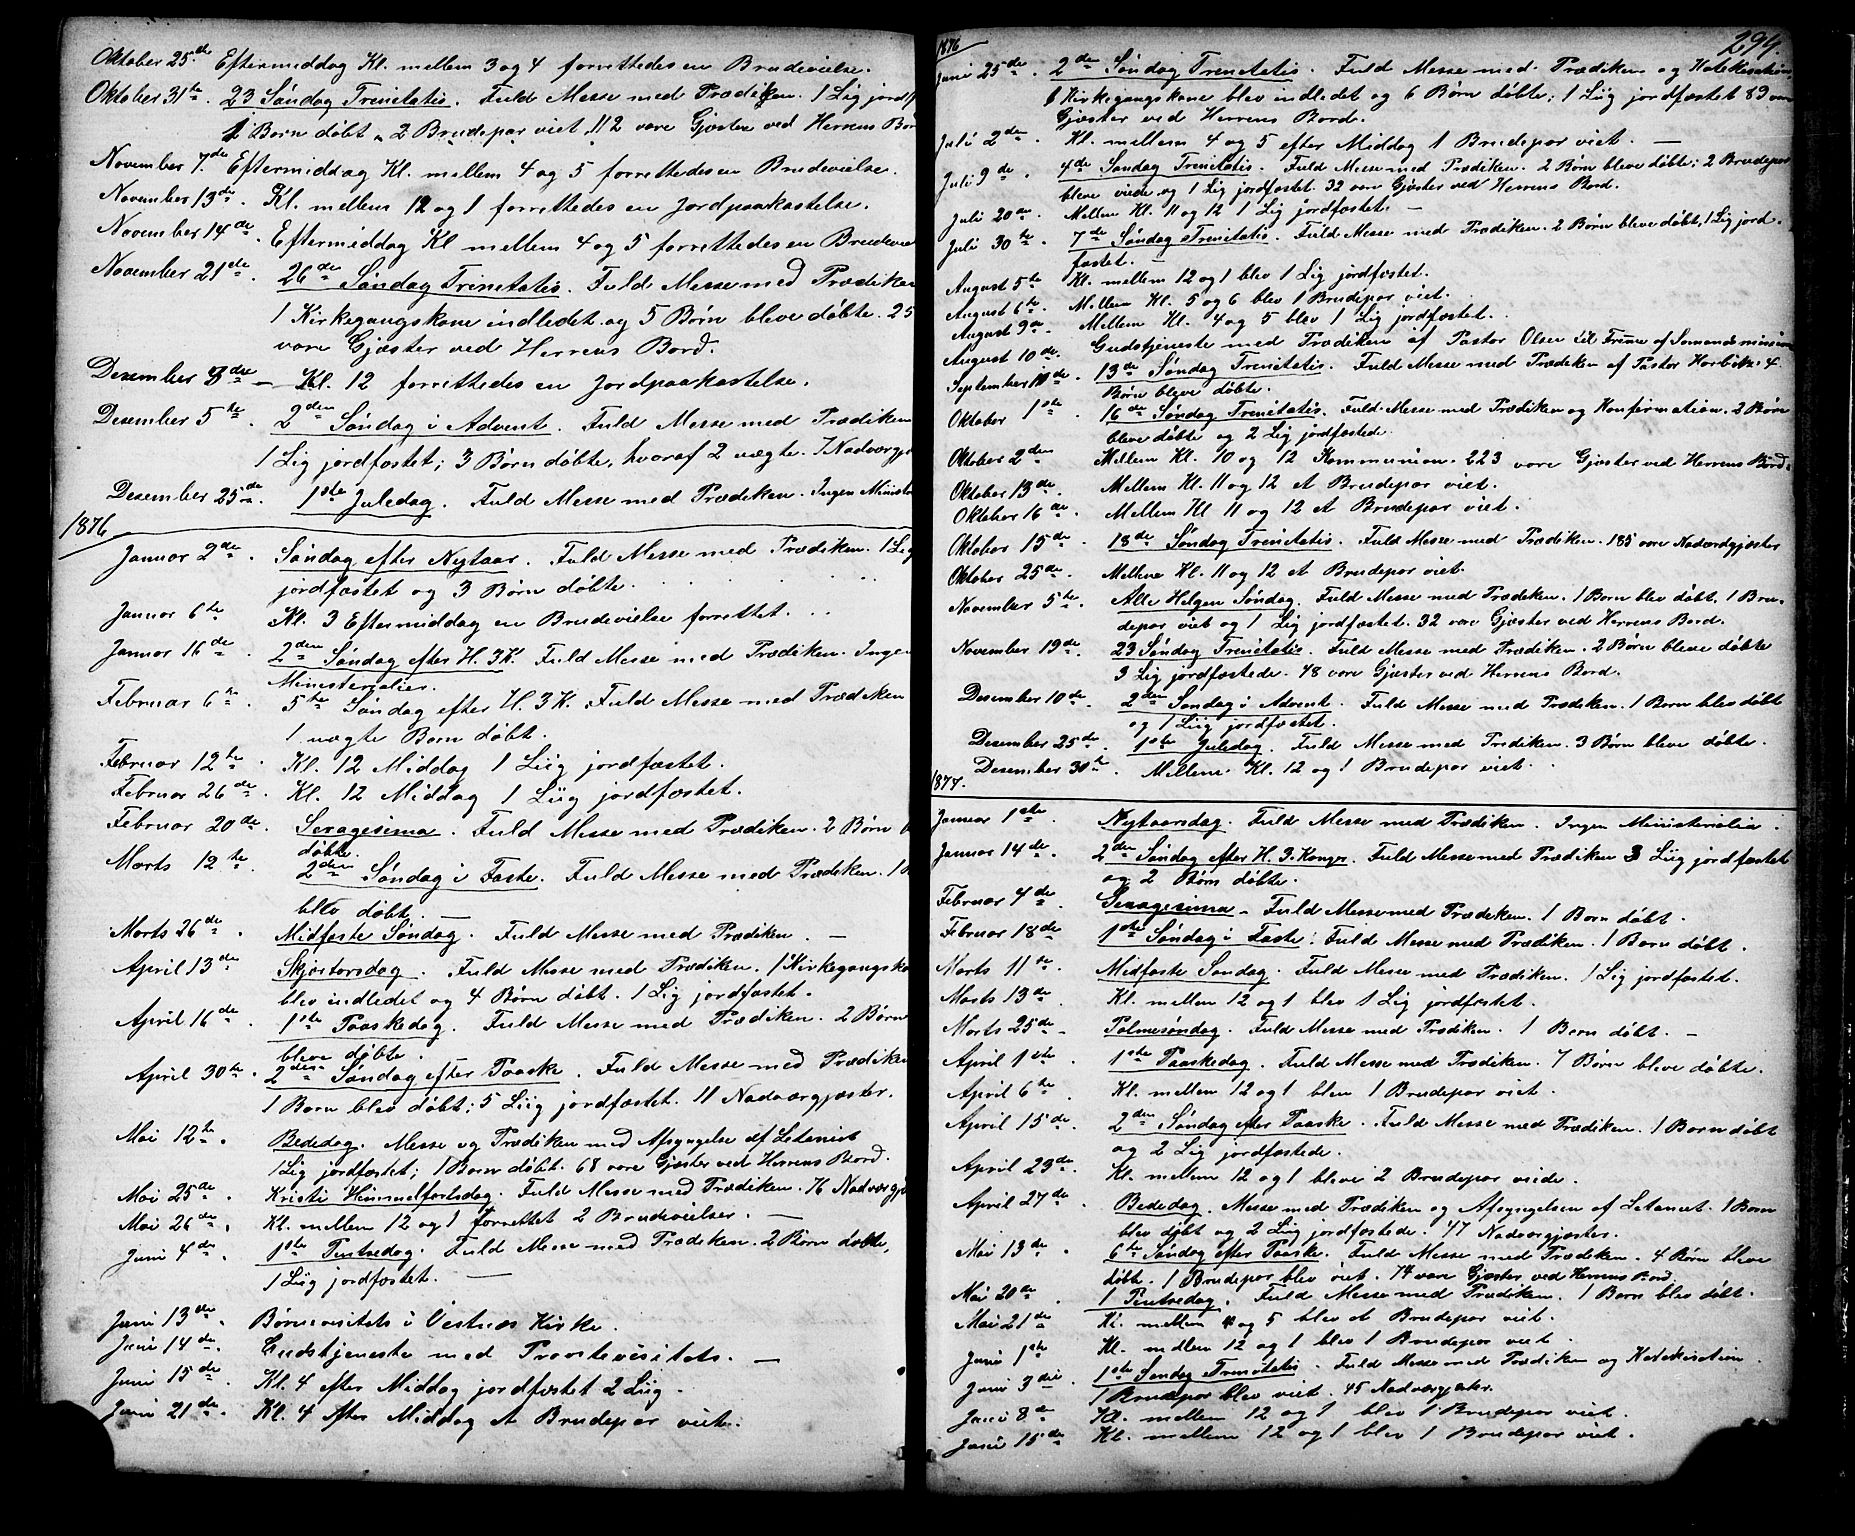 Oktober 25de Eftermiddag Kl. mellem 3 og 4 forrettedes en Brudevielse.
Oktober 31te. 23 Søndag Trinitatis. Fuld Messe med Prædiken. 1 Lig jordf
1 Børn døbt, 2 Brudepar viet, 112 vare Gjæster ved Herrens Bord
November 7de Eftermiddag Kl. mellem 4 og 5 forrettedes en Brudevielse.
November 13de. Kl. mellem 12 og 1 forrettedes en Jordpaakastelse.
November 14de. Eftermiddag Kl mellem 4 og 5 forrettedes en Brudevie
November 21de. 26de Søndag Trinitatis. Fuld Messe med Prædiken
1 Kirkegangskone indledet og 5 Børn bleve døbte. 25
vare Gjæster ved Herrens Bord.
Desember 3die – Kl. 12 forrettedes en Jordpaakastelse.
Desember 5te. 2den Søndag i Advent. Fuld Messe med Prædiken
1 Lig jordfæstet; 3 Børn døbte, hvoraf 2 uægte. 7 Nadvergjæ
Desember 25de. 1ste Juledag. Fuld Messe med Prædiken. Ingen Ministe
1876
Januar 2de. Søndag efter Nytaar. Fuld Messe med Prædiken. 1 Lig
jordfæstet og 3 Børn døbte.
Januar 6te Kl. 3 Eftermiddag en Brudevielse forrettet.
Januar 16de. 2den Søndag efter H. 3 K. Fuld Messe med Prædiken. Ingen
Ministerialier.
Februar 6te. 5te Søndag efter H. 3 K. Fuld Messe med Prædiken
1 uægte Barn døbt.
Februar 12te. Kl. 12 Middag 1 Liig jordfæstet.
Februar 26de. Kl. 12 Middag 1 Liig jordfæstet.
Februar 20de. Sexagesima. Fuld Messe med Prædiken. 2 Børn b
døbte.
Marts 12te. 2den Søndag i Faste. Fuld Messe med Prædiken. 1 B
blev døbt. –
Marts 26de. Midfaste Søndag. Fuld Messe med Prædiken. –
April 13de Skjærtorsdag. Fuld Messe med Prædiken. 1 Kirkegangsko
blev indledet og 4 Børn døbt. 1 Lig jordfæstet.
April 16de. 1ste Paaskedag. Fuld Messe med Prædiken. 2 Børn
bleve døbte.
April 30te. 2den Søndag efter Paaske. Fuld Messe med Prædiken
1 Barn blev døbt; 5 Liig jordfæstet. 11 Nadvergjæster.
Mai 12te. Bededag. Messe og Prædiken med Afsyngelse af Letaniet
1 Lig jordfæstet; 1 Barn døbt. 68 vare Gjæster ved Herrens Bord.
Mai 25de. Kristi Himmelfartsdag. Fuld Messe med Prædiken. 76 Nadvergjæ
Mai 26de. Kl. mellem 12 og 1 forrettet 2 Brudevielser. –
Juni 4de. 1ste Pintsedag. Fuld Messe med Prædiken. 2 Børn døbte,
1 Liig jordfæstet. –
Juni 13de. Børnevisitats i Vestnæs Kirke.
Juni 14de. Gudstjeneste med Provstevisitats. –
Juni 15de. Kl. 4 efter Middag jordfæstet 2 Liig.
Juni 21de. Kl. 4 efter Middag et Brudepar viet.
294.
1876
Juni 25de. 2den Søndag Trinitatis. Fuld Messe med Prædiken og Katekisation
1 Kirkegangskone blev indledet og 6 Børn døbte; 1 Liig jordfæstet 89 vare
Gjæster ved Herrens Bord.
Juli 2de. Kl. mellem 4 og 5 efter Middag 1 Brudepar viet. –
Juli 9de. 4de Søndag Trinitatis. Fuld Messe med Prædiken. 2 Børn bleve døbte; 2 Brudepar
bleve viede og 1 Lig jordfæstet. 32 vare Gjæster ved Herrens Bord.
Juli 20de. Mellem Kl. 11 og 12 1 Lig jordfæstet. –
Juli 30te. 7de Søndag Trinitatis. Fuld Messe med Prædiken. 2 Børn bleve døbte, 1 Lig jord-
fæstet.
August 5te Kl. mellem 12 og 1 blev 1 Lig jordfæstet.
August 6te. Mellem Kl. 5 og 6 blev 1 Brudepar viet.
August 9de Mellem Kl. 4 og 5 blev 1 Lig jordfæstet.
August 10de. Gudstjeneste med Prædiken af Pastor Olsen
September 10de. 13de Søndag Trinitatis. Fuld Messe med Prædiken af Pastor 4
Børn bleve døbte.
Oktober 1ste. 16de Søndag Trinitatis. Fuld Messe med Prædiken og Konfirmation. 2 Børn
bleve døbte og 2 Lig jordfæstede.
Oktober 2den Mellem Kl. 10 og 12 Kommunion. 223 vare Gjæster ved Herrens Bord.
Oktober 13de. Mellem Kl. 11 og 12 et Brudepar viet.
Oktober 16de. Mellem Kl 11 og 12 et Brudepar viet.
Oktober 15de. 18de Søndag Trinitatis. Fuld Messe med Prædiken. 185 vare Nadverdgjæster
Oktober 25de. Mellem Kl. 11 og 12 et Brudepar viet.
November 5te. Alle Helgen Søndag. Fuld Messe med Prædiken. 1 Barn blev døbt, 1 Bru-
depar viet og 1 Lig jordfæstet. 32 vare Gjæster ved Herrens Bord.
November 19de. 23 Søndag Trinitatis. Fuld Messe med Prædiken. 2 Børn bleve døbte
3 Lig jordfæstede. 48 vare Gjæster ved Herrens Bord.
Desember 10de. 2den Søndag i Advent. Fuld Messe med Prædiken. 1 Barn blev døbt
og 1 Liig jordfæstet.
Desember 25de. 1ste Juledag. Fuld Messe med Prædiken. 3 Børn bleve døbte.
Desember 30te. Mellem Kl. 12 og 1 Brudepar viet.
1877.
Januar 1ste. Nytaarsdag. Fuld Messe med Prædiken. Ingen Ministerialia.
Januar 14de. 2den Søndag efter H. 3. Konger. Fuld Messe med Prædiken 3 Liig jordfæstet
og 2 Børn døbte.
Februar 4de Sexagesima – Fuld Messe med Prædiken. 1 Barn døbt.
Februar 18de 1ste Søndag i Faste. Fuld Messe med Prædiken. 1 Barn døbt.
Marts 11te. Midfaste Søndag. Fuld Messe med Prædiken. 1 Lig jordfæstet.
Marts 13de. Kl. mellem 12 og 1 blev 1 Lig jordfæstet.
Marts 25de – Palmesøndag. Fuld Messe med Prædiken. 1 Barn døbt. –
April 1ste. 1ste Paaskedag. Fuld Messe med Prædiken. 7 Børn bleve døbte.
April 6te. Kl. mellem 12 og 1 blev 1 Brudepar viet.
April 15de. 2den Søndag efter Paaske. Fuld Messe med Prædiken. 1 Barn døbt
og 2 Lig jordfæstede.
April 23de. Kl. mellem 12 og 1 bleve 2 Brudepar viede.
April 27de. Bededag. Messe med Prædiken og Afsyngelsen af Letaniet. 1 Barn
blev døbt og 2 Liig jordfæstede. 47 Nadvergjæster.
Mai 13de. 6te Søndag efter Paaske. Fuld Messe med Prædiken. 4 Børn bleve
døbte. 1 Brudepar blev viet. 74 vare Gjæster ved Herrens Bord.
Mai 20de. 1 Pintsedag. Fuld Messe med Prædiken. 1 Barn blev døbt.
Mai 21de Kl. mellem 4 og 5 blev et Brudepar viet.
Juni 1ste Kl. mellem 12 og 1 blev 1 Brudepar viet.
Juni 3die. 1ste Søndag Trinitatis. Fuld Messe med Prædiken og Katekisation.
1 Brudepar blev viet. 45 Nadvergjæster.
Juni 8de Kl. mellem 12 og 1 blev 1 Brudepar viet.
Juni 15de Kl. mellem 12 og 1 blev 1 Brudepar viet.